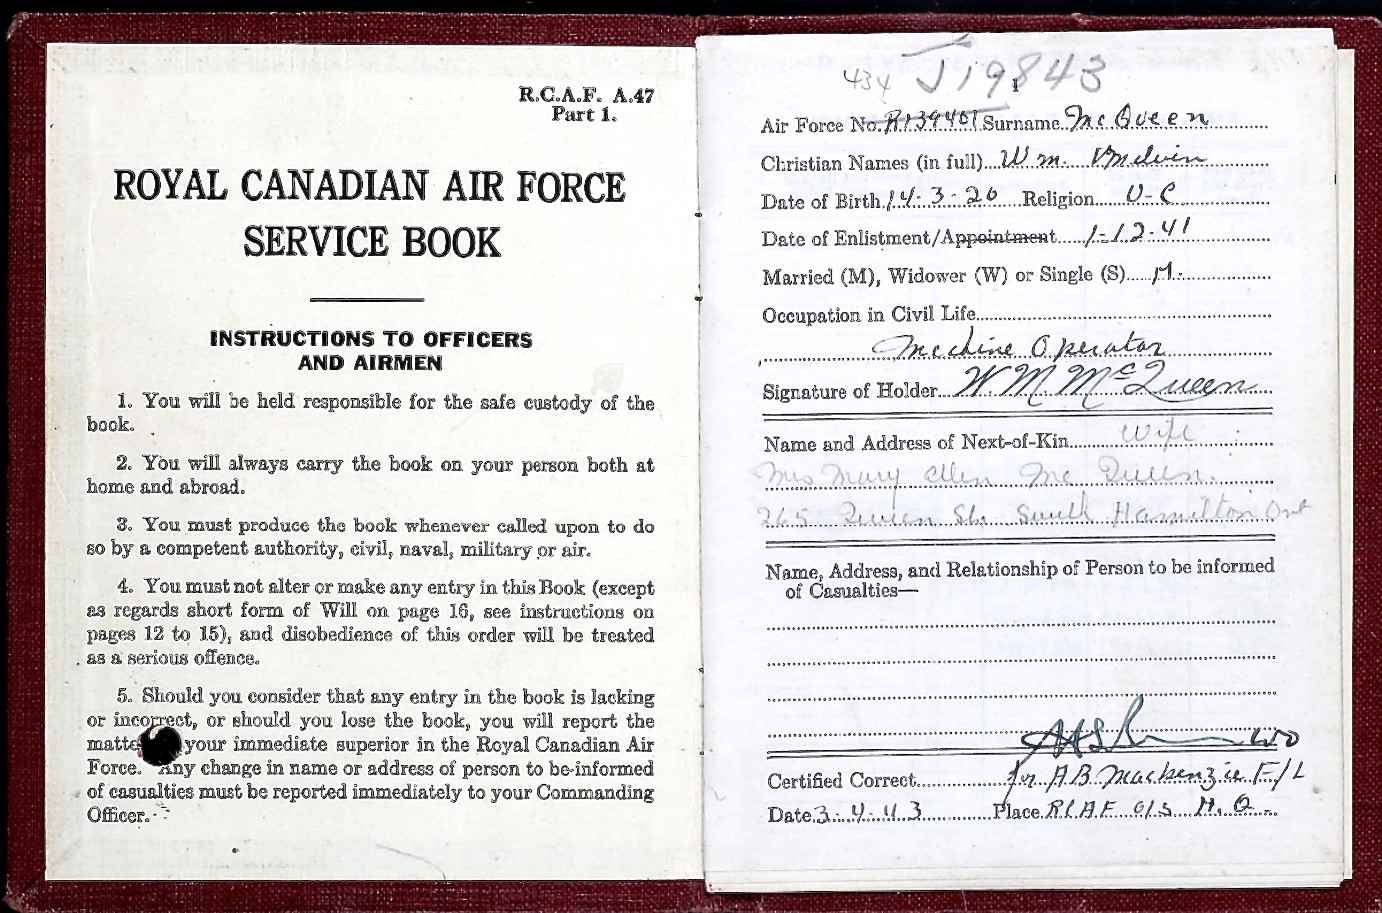 R.C.A.F. A.47
Part 1.
ROYAL CANADIAN AIR FORCE
SERVICE BOOK
INSTRUCTIONS TO OFFICERS
AND AIRMEN
1. You will be held responsible for the safe custody of the
book.
2. You will always carry the book on your person both at
home and abroad.
3. You must produce the book whenever called upon to do
so by a competent authority, civil, naval, military or air.
4. You must not alter or make any entry in this Book (except
as regards short form of Will on page 16, see instructions on
pages 12 to 15), and disobedience of this order will be treated
as a serious offence.
5. Should you consider that any entry in the book is lacking
or incorrect, or should you lose the book, you will report the
your immediate superior in the Royal Canadian Air
Force. Any change in name or address of person to be informed
of casualties must be reported immediately to your Commanding
Officer.
434 J19843
1
Air Force No. R139401 Surname McQueen
Christian Names (in full) Wm. Melvin
Date of Birth 14.3.20 Religion U-C
Date of Enlistment/Appointment 1-12-41
Married (M), Widower (W) or Single (S) M.
Occupation in Civil Life
Machine Operator
Signature of Holder W M McQueen
Name and Address of Next-of-Kin Wife
Mrs Mary Ellen McQueen.
265 Queen St. South Hamilton Ont
Name, Address, and Relationship of Person to be informed
of Casualties—
WO
Certified Correct for A.B. Mackenzie F/L
Date 3.4.43 Place RCAF O/S H.Q.